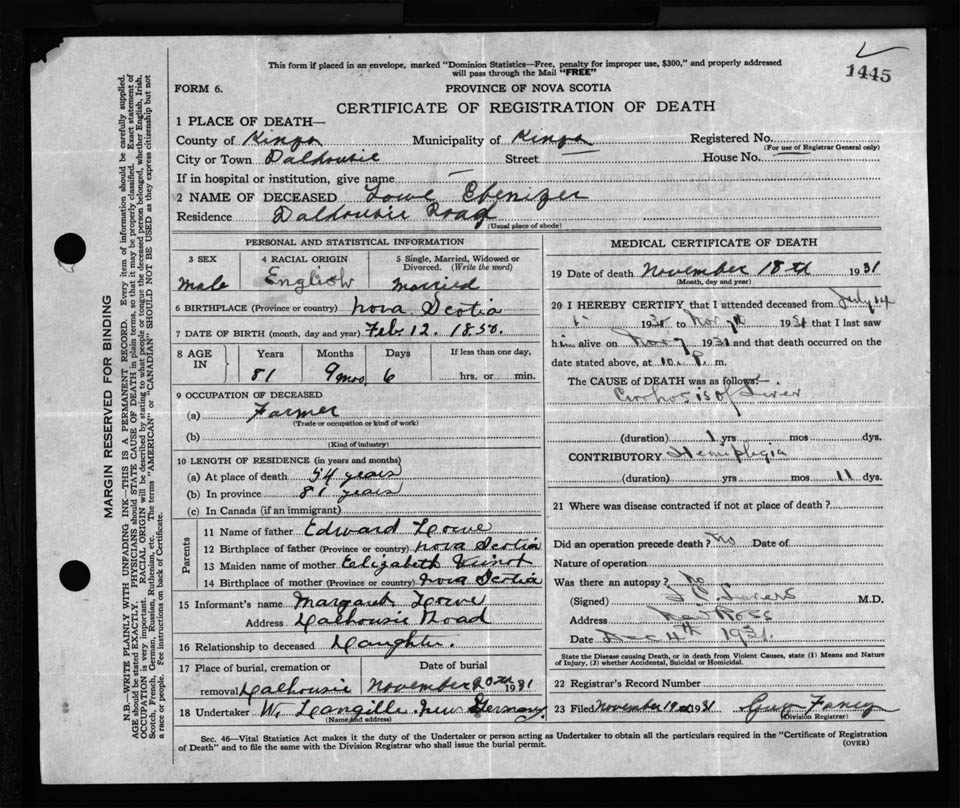 1445
This form if placed in an envelope, marked "Dominion Statistics—Free, penalty for improper use, $300," and properly addressed
will pass through the Mail "FREE"
FORM 6.
PROVINCE OF NOVA SCOTIA
CERTIFICATE OF REGISTRATION OF DEATH
1 PLACE OF DEATH—
County of Kings Municipality of Kings Registered No.
(For use of Registrar General only)
City or Town Dalhousie Street — House No. —
If in hospital or institution, give name —
2 NAME OF DECEASED Lowe Ebenizer
Residence Dalhousie Road
(Usual place of abode)
PERSONAL AND STATISTICAL INFORMATION
3 SEX
4 RACIAL ORIGIN
5 Single, Married, Widowed or
Divorced. (Write the word)
Male English Married
6 BIRTHPLACE (Province or country) Nova Scotia
7 DATE OF BIRTH (month, day and year) Feb. 12. 1850.
8 AGE IN
Years Months Days
If less than one day,
81 9 mos, 6 hrs. or min.
9 OCCUPATION OF DECEASED
(a) Farmer
(Trade or occupation or kind of work)
(b)
(Kind of industry)
10 LENGTH OF RESIDENCE (in years and months)
(a) At place of death 54 years
(b) In province 81 years
(c) In Canada (if an immigrant)
Parents
11 Name of father Edward Lowe
12 Birthplace of father (Province or country) Nova Scotia
13 Maiden name of mother Elizabeth
14 Birthplace of mother (Province or country) Nova Scotia
15 Informant's name Margaret Lowe
Address Dalhousie Road
16 Relationship to deceased Daughter.
17 Place of burial, cremation or
Date of burial
removal Dalhousie November 20th 1931
18 Undertaker W. Langille. New Germany
(Name and address)
MEDICAL CERTIFICATE OF DEATH
19 Date of death November 18th 1931
(Month, day and year)
20 I HEREBY CERTIFY that I attended deceased from July 14
193 to Nov 7th 1931 that I last saw
him alive on Nov 7 1931 and that death occurred on
date stated above, at 10. P. m.
The CAUSE of DEATH was as follows:—
Cirrhosis of Liver
(duration) 1 yrs mos dys.
CONTRIBUTORY Hemiplegia
(duration) yrs mos 11 dys.
21 Where was disease contracted if not at place of death?
Did an operation precede death? No Date of
Nature of operation
Was there an autopsy? No
(Signed) M.D.
Address New Ross
Date Dec 4th 1931.
State the Disease causing Death, or in death from Violent Causes, state (1) Means and Nature
of Injury, (2) whether Accidental, Suicidal or Homicidal.
22 Registrar's Record Number
23 Filed November 19 1931 Guy
(Division Registrar)
Sec. 46—Vital Statistics Act makes it the duty of the Undertaker or person acting as Undertaker to obtain all the particulars required in the "Certificate of Registration
of Death" and to file the same with the Division Registrar who shall issue the burial permit.
(OVER)
MARGIN RESERVED FOR BINDING
N.B.—WRITE PLAINLY WITH UNFADING INK—THIS IS A PERMANENT RECORD. Every item of information should be carefully supplied.
AGE should be stated EXACTLY. PHYSICIANS should STATE CAUSE OF DEATH in plain terms, so that it may be properly classified. Exact statement of
OCCUPATION is very important. RACIAL ORIGIN will be described by stating to what people or tongue the deceased person belonged, whether English, Irish,
Scotch, French, German, Russian, Ruthenian, etc. The terms "AMERICAN" or "CANADIAN" SHOULD NOT BE USED as they express citizenship but not
a race or people. Fee instructions on back of Certificate.